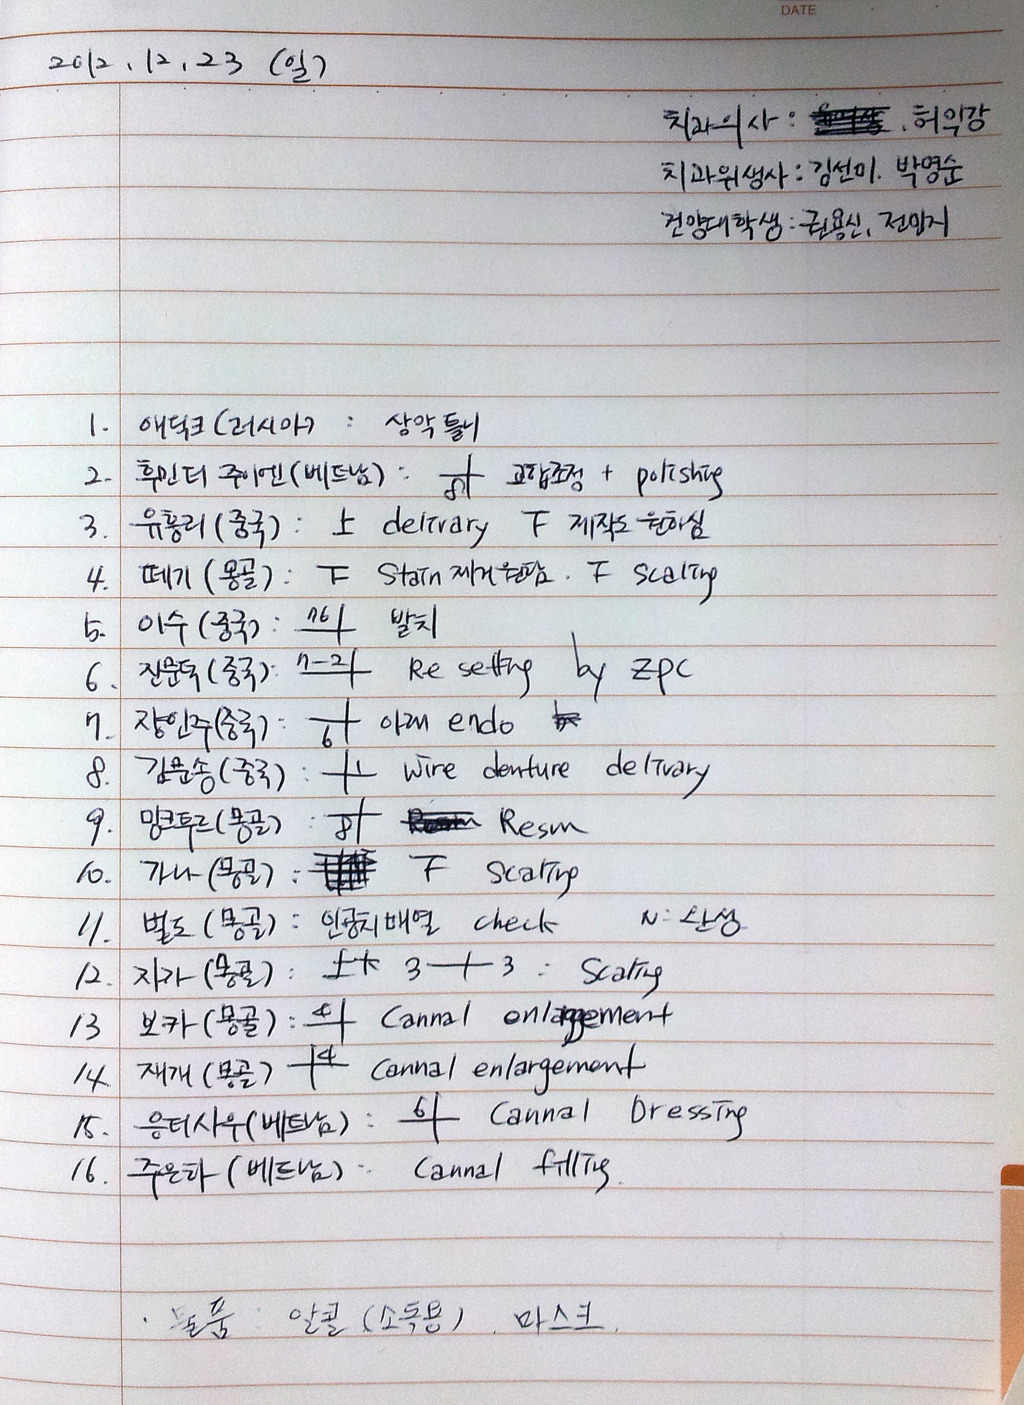 DATE
2012.12.23 (일)
치과의사 : , 허익강
치과위생사 : 김선미. 박영순
건양대학생 : 권용신, 전민지
1. 애덕크(러시아) : 상악 틀니
2. 후민터 주이엔(베트남) : 8 교합조정 + polishing
3. 유홍리(중국) : ⊥ delivary ㅜ 제작도 원하심
4. 떼기(몽골) : ㅜ Stain 제거 원함. ㅜ scaling
5. 이수(중국) : 76 발치
6. 진문독(중국) : 7-2 Re setting by ZPC
7. 장인주(중국) : 6 아래 endo
8. 김문송(중국) : 1 wire denture delivary
9. 밍크투르(몽골) : 8 Resin
10. 가나(몽골) : ㅜ Scaling
11. 벌도(몽골) : 인공치 배열 check N: 완성
12. 자가(몽골) : 3 ㅡ 3 : Scaling
13 보카(몽골) : 4 Cannal enlargement
14. 재개(몽골) 4 Cannal enlargement
15. 응터사우(베트남) : 6 Cannal Dressing
16. 주은타(베트남) : Cannal filling.
· 물품 : 알콜(소독용). 마스크.